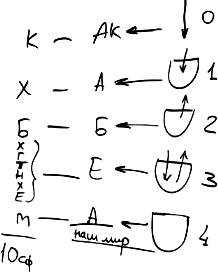 К – АК 0
Х – А 1
Б – Б 2
Х
Г
Т
Н Е 3
Х
Е
М – А 4
10сф наш мир